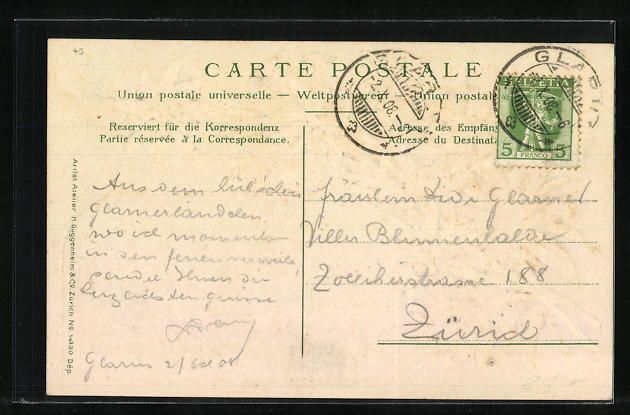 45
CARTE POSTALE
Union postale universelle — Weltpostverein — Union postale
Reserviert für die Korrespondenz
Partie réservée à la Correspondance.
Adresse des Empfäng
Adresse du Destinata
GLARUS
HELVETIA
5 FRANCO 5
Artist. Atelier H. Guggenheim & Co Zürich No 14330 Dép.
Aus dem hübschen
Glarnerländchen
wo ich momentan
in den Ferien
sende Ihnen die
herzlichsten Grüsse
Glarus
Fräulein Glarner
Villa Blumenhalde
Zollikerstrasse 188
Zürich